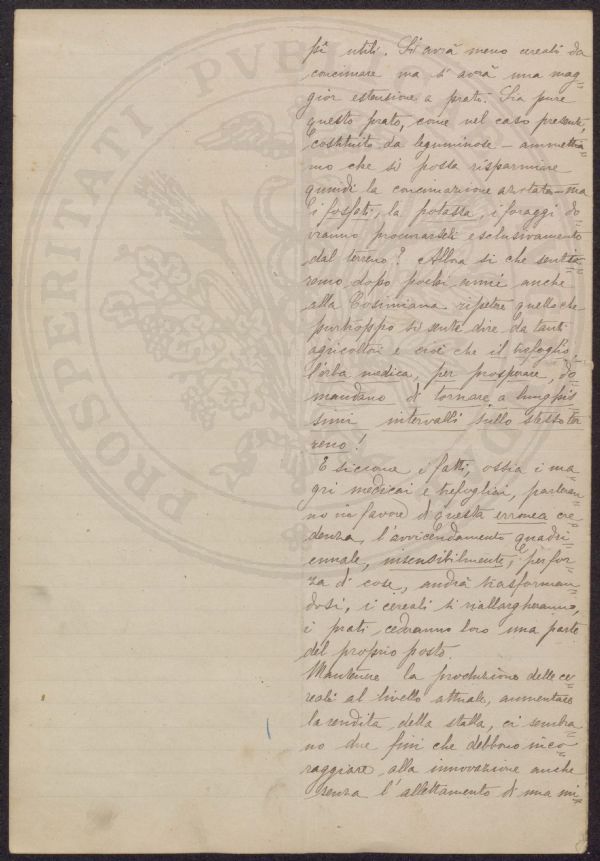 più utili. Si avrà meno cereali da
concimare ma si avrà una mag=
gior estensione a prato. Sia pure
questo prato, come nel caso presente,
costituito da leguminose – ammettia=
mo che si possa risparmiare
quindi la concimazione azotata – ma
i fosfati, la potassa, i foraggi do=
vranno procurarseli esclusivamente
dal terreno? Allora sì che senti=
remo dopo pochi anni anche
alla Cosimiana ripetere quello che
purtroppo si sente dire da tanti
agricoltori e cioè che il trifoglio,
l'erba medica, per prosperare, do=
mandano di tornare a lunghis=
simi intervalli sullo stesso ter=
reno!
E siccome i fatti, ossia i ma=
gri medicai e trifogliai, parleran=
no in favore di questa erronea cre=
denza, l'avvicendamento quadri=
ennale, insensibilmente, e per for=
za di cose, andrà trasforman=
dosi, i cereali si riallargheranno,
i prati cederanno loro una parte
del proprio posto.
Mantenere la produzione delle ce=
reali al livello attuale, aumentare
la rendita della stalla, ci sembra=
no due fini che debbono inco=
raggiare alla innovazione anche
senza l'allettamento di una mi=
PROSPERITATI PVBL